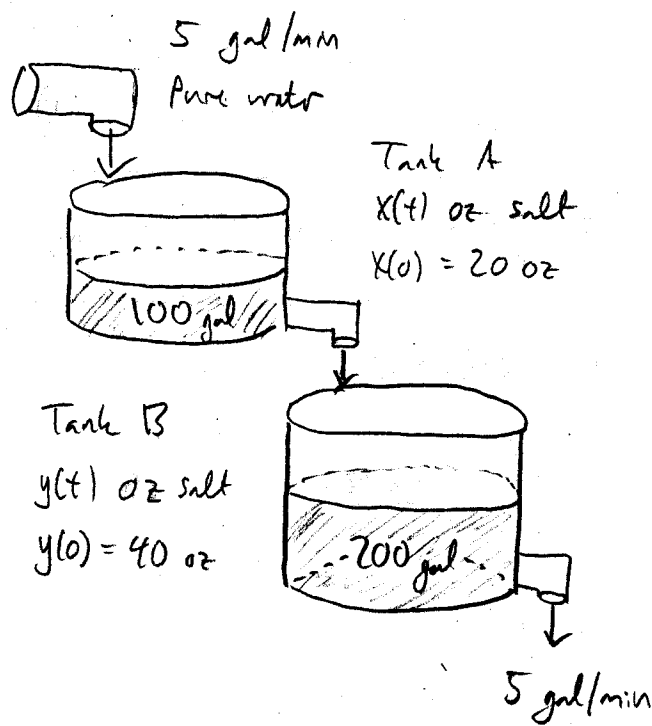 5 gal/min
Pure water
Tank A
x(t) oz salt
x(0) = 20 oz
100 gal
Tank B
y(t) oz salt
y(0) = 40 oz
200 gal
5 gal/min